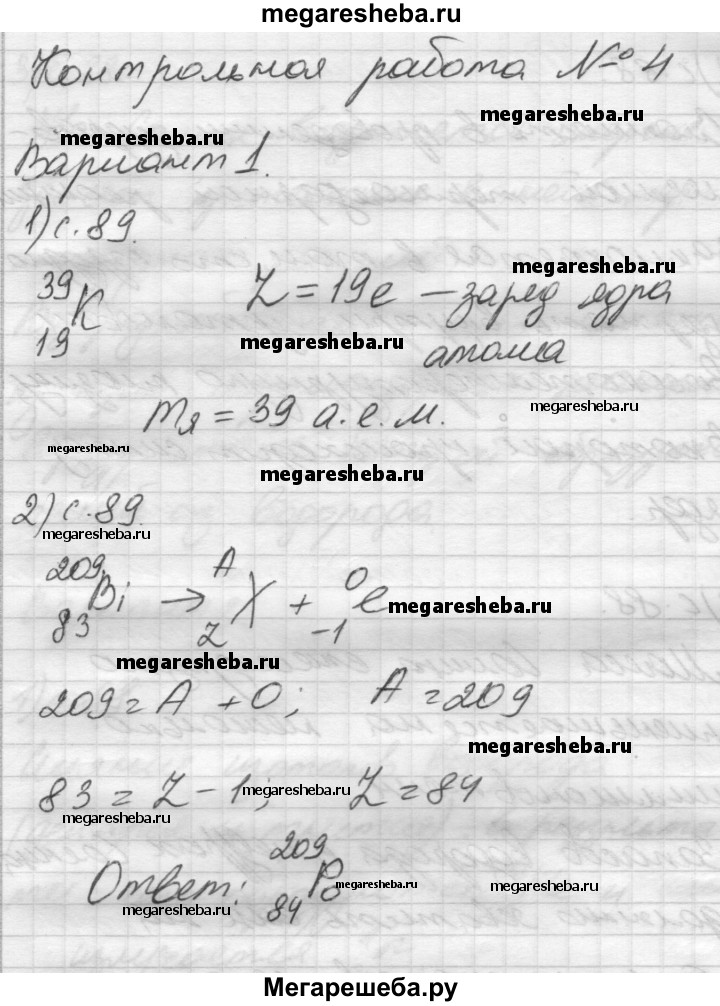 megaresheba.ru
Контрольная работа № 4
megaresheba.ru
megaresheba.ru
Вариант 1.
1) с. 89.
megaresheba.ru
³⁹₁₉K Z = 19e — заряд ядра
megaresheba.ru
атома
mя = 39 а.е.м.
megaresheba.ru
megaresheba.ru
megaresheba.ru
2) с. 89.
megaresheba.ru
²⁰⁹₈₃Bi → ᴬ_Z X + ⁰₋₁e
megaresheba.ru
megaresheba.ru
209 = A + 0; A = 209
megaresheba.ru
83 = Z - 1; Z = 84
megaresheba.ru
megaresheba.ru
Ответ: ²⁰⁹₈₄Po
megaresheba.ru
megaresheba.ru
megaresheba.ru
Мегарешеба.ру